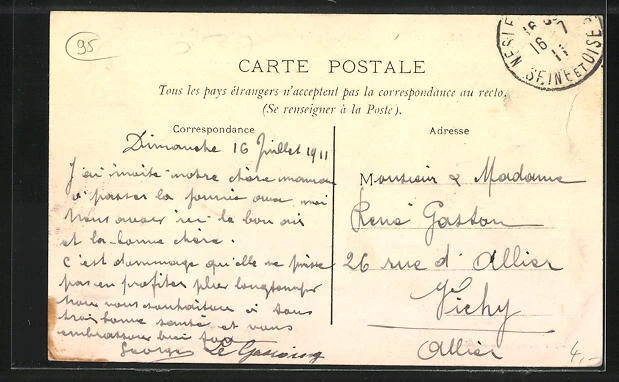 95
NESLE
16 7
11
SEINE ET OISE
CARTE POSTALE
Tous les pays étrangers n'acceptent pas la correspondance au recto.
(Se renseigner à la Poste).
Correspondance
Dimanche 16 Juillet 1911
J'ai invité notre chère maman
à passer la journée avec moi
Nous avons ici le bon air
et la bonne chère.
C'est dommage qu'elle ne puisse
pas en profiter plus longtemps
Nous vous souhaitons à tous
très bonne santé et vous
embrassons bien
Georges
Adresse
Monsieur & Madame
René Gaston
26 rue d'Allier
Vichy
Allier
4,-